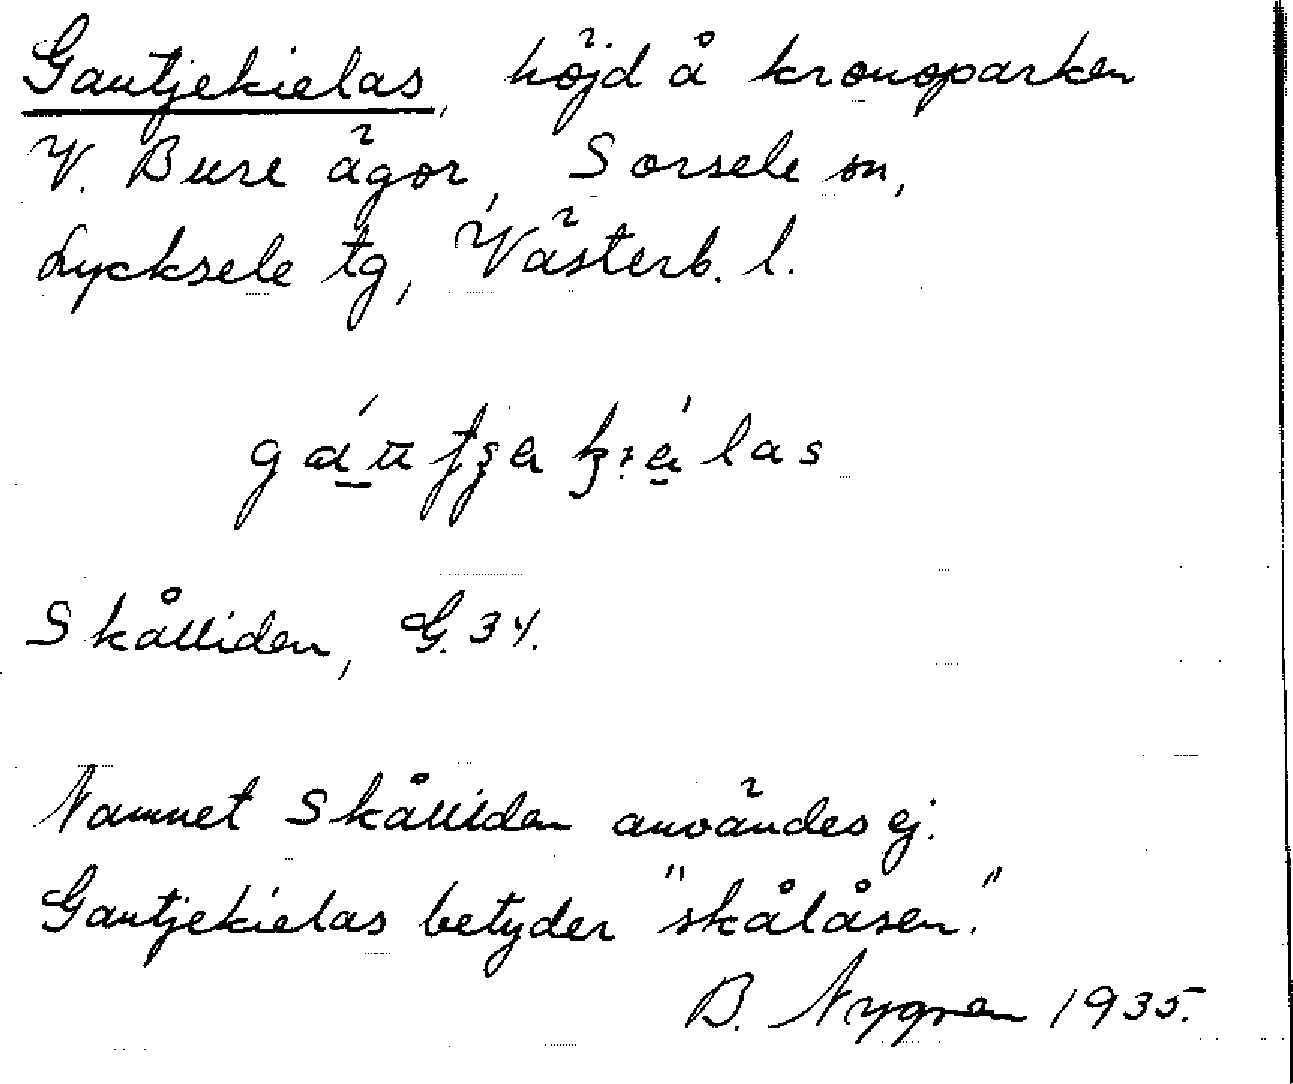 Gautjekielas, höjd å kronoparken
V. Bure ägor, Sorsele sn,
Lycksele tg, Västerb. l.
Skålliden, G. 34.
Namnet Skålliden användes ej.
Gautjekielas betyder "skålåsen."
B. Nygren 1935.